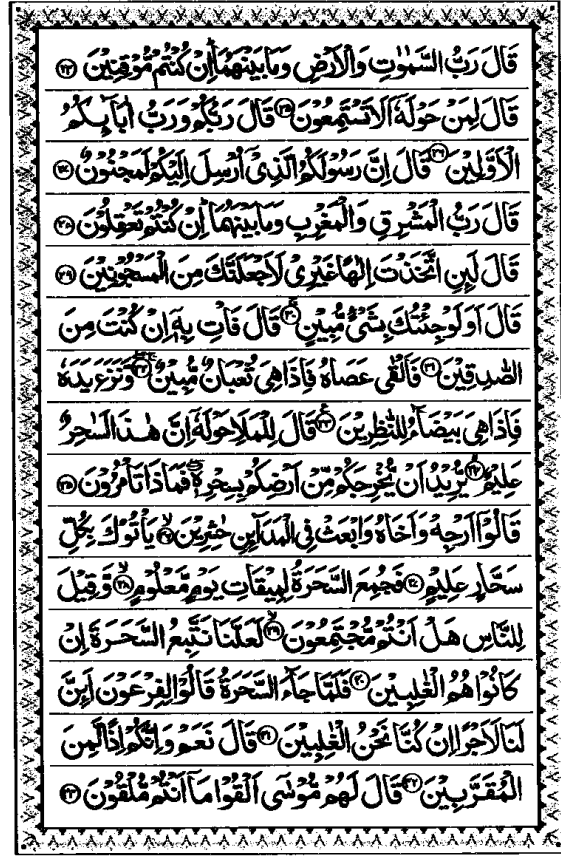 قَالَ رَبُّ السَّمٰوٰتِ وَالْاَرْضِ وَمَا بَيْنَهُمَا ؕ اِنْ كُنْتُمْ مُّوْقِنِيْنَ ﴿۲۴﴾
قَالَ لِمَنْ حَوْلَهٗۤ اَلَا تَسْتَمِعُوْنَ ﴿۲۵﴾ قَالَ رَبُّكُمْ وَرَبُّ اٰبَآىِٕكُمُ
الْاَوَّلِيْنَ ﴿۲۶﴾ قَالَ اِنَّ رَسُوْلَكُمُ الَّذِيْۤ اُرْسِلَ اِلَيْكُمْ لَمَجْنُوْنٌ ﴿۲۷﴾
قَالَ رَبُّ الْمَشْرِقِ وَالْمَغْرِبِ وَمَا بَيْنَهُمَا ؕ اِنْ كُنْتُمْ تَعْقِلُوْنَ ﴿۲۸﴾
قَالَ لَىِٕنِ اتَّخَذْتَ اِلٰهًا غَيْرِيْ لَاَجْعَلَنَّكَ مِنَ الْمَسْجُوْنِيْنَ ﴿۲۹﴾
قَالَ اَوَلَوْ جِئْتُكَ بِشَيْءٍ مُّبِيْنٍ ﴿۳۰﴾ قَالَ فَاْتِ بِهٖۤ اِنْ كُنْتَ مِنَ
الصّٰدِقِيْنَ ﴿۳۱﴾ فَاَلْقٰى عَصَاهُ فَاِذَا هِيَ ثُعْبَانٌ مُّبِيْنٌ ﴿۳۲﴾ وَّنَزَعَ يَدَهٗ
فَاِذَا هِيَ بَيْضَآءُ لِلنّٰظِرِيْنَ ﴿۳۳﴾ قَالَ لِلْمَلَاِ حَوْلَهٗۤ اِنَّ هٰذَا لَسٰحِرٌ
عَلِيْمٌ ﴿۳۴﴾ يُّرِيْدُ اَنْ يُّخْرِجَكُمْ مِّنْ اَرْضِكُمْ بِسِحْرِهٖ فَمَاذَا تَاْمُرُوْنَ ﴿۳۵﴾
قَالُوْۤا اَرْجِهْ وَاَخَاهُ وَابْعَثْ فِي الْمَدَآىِٕنِ حٰشِرِيْنَ ﴿۳۶﴾ يَاْتُوْكَ بِكُلِّ
سَحَّارٍ عَلِيْمٍ ﴿۳۷﴾ فَجُمِعَ السَّحَرَةُ لِمِيْقَاتِ يَوْمٍ مَّعْلُوْمٍ ﴿۳۸﴾ وَّقِيْلَ
لِلنَّاسِ هَلْ اَنْتُمْ مُّجْتَمِعُوْنَ ﴿۳۹﴾ لَعَلَّنَا نَتَّبِعُ السَّحَرَةَ اِنْ
كَانُوْا هُمُ الْغٰلِبِيْنَ ﴿۴۰﴾ فَلَمَّا جَآءَ السَّحَرَةُ قَالُوْا لِفِرْعَوْنَ اَىِٕنَّ
لَنَا لَاَجْرًا اِنْ كُنَّا نَحْنُ الْغٰلِبِيْنَ ﴿۴۱﴾ قَالَ نَعَمْ وَاِنَّكُمْ اِذًا لَّمِنَ
الْمُقَرَّبِيْنَ ﴿۴۲﴾ قَالَ لَهُمْ مُّوْسٰۤى اَلْقُوْا مَاۤ اَنْتُمْ مُّلْقُوْنَ ﴿۴۳﴾